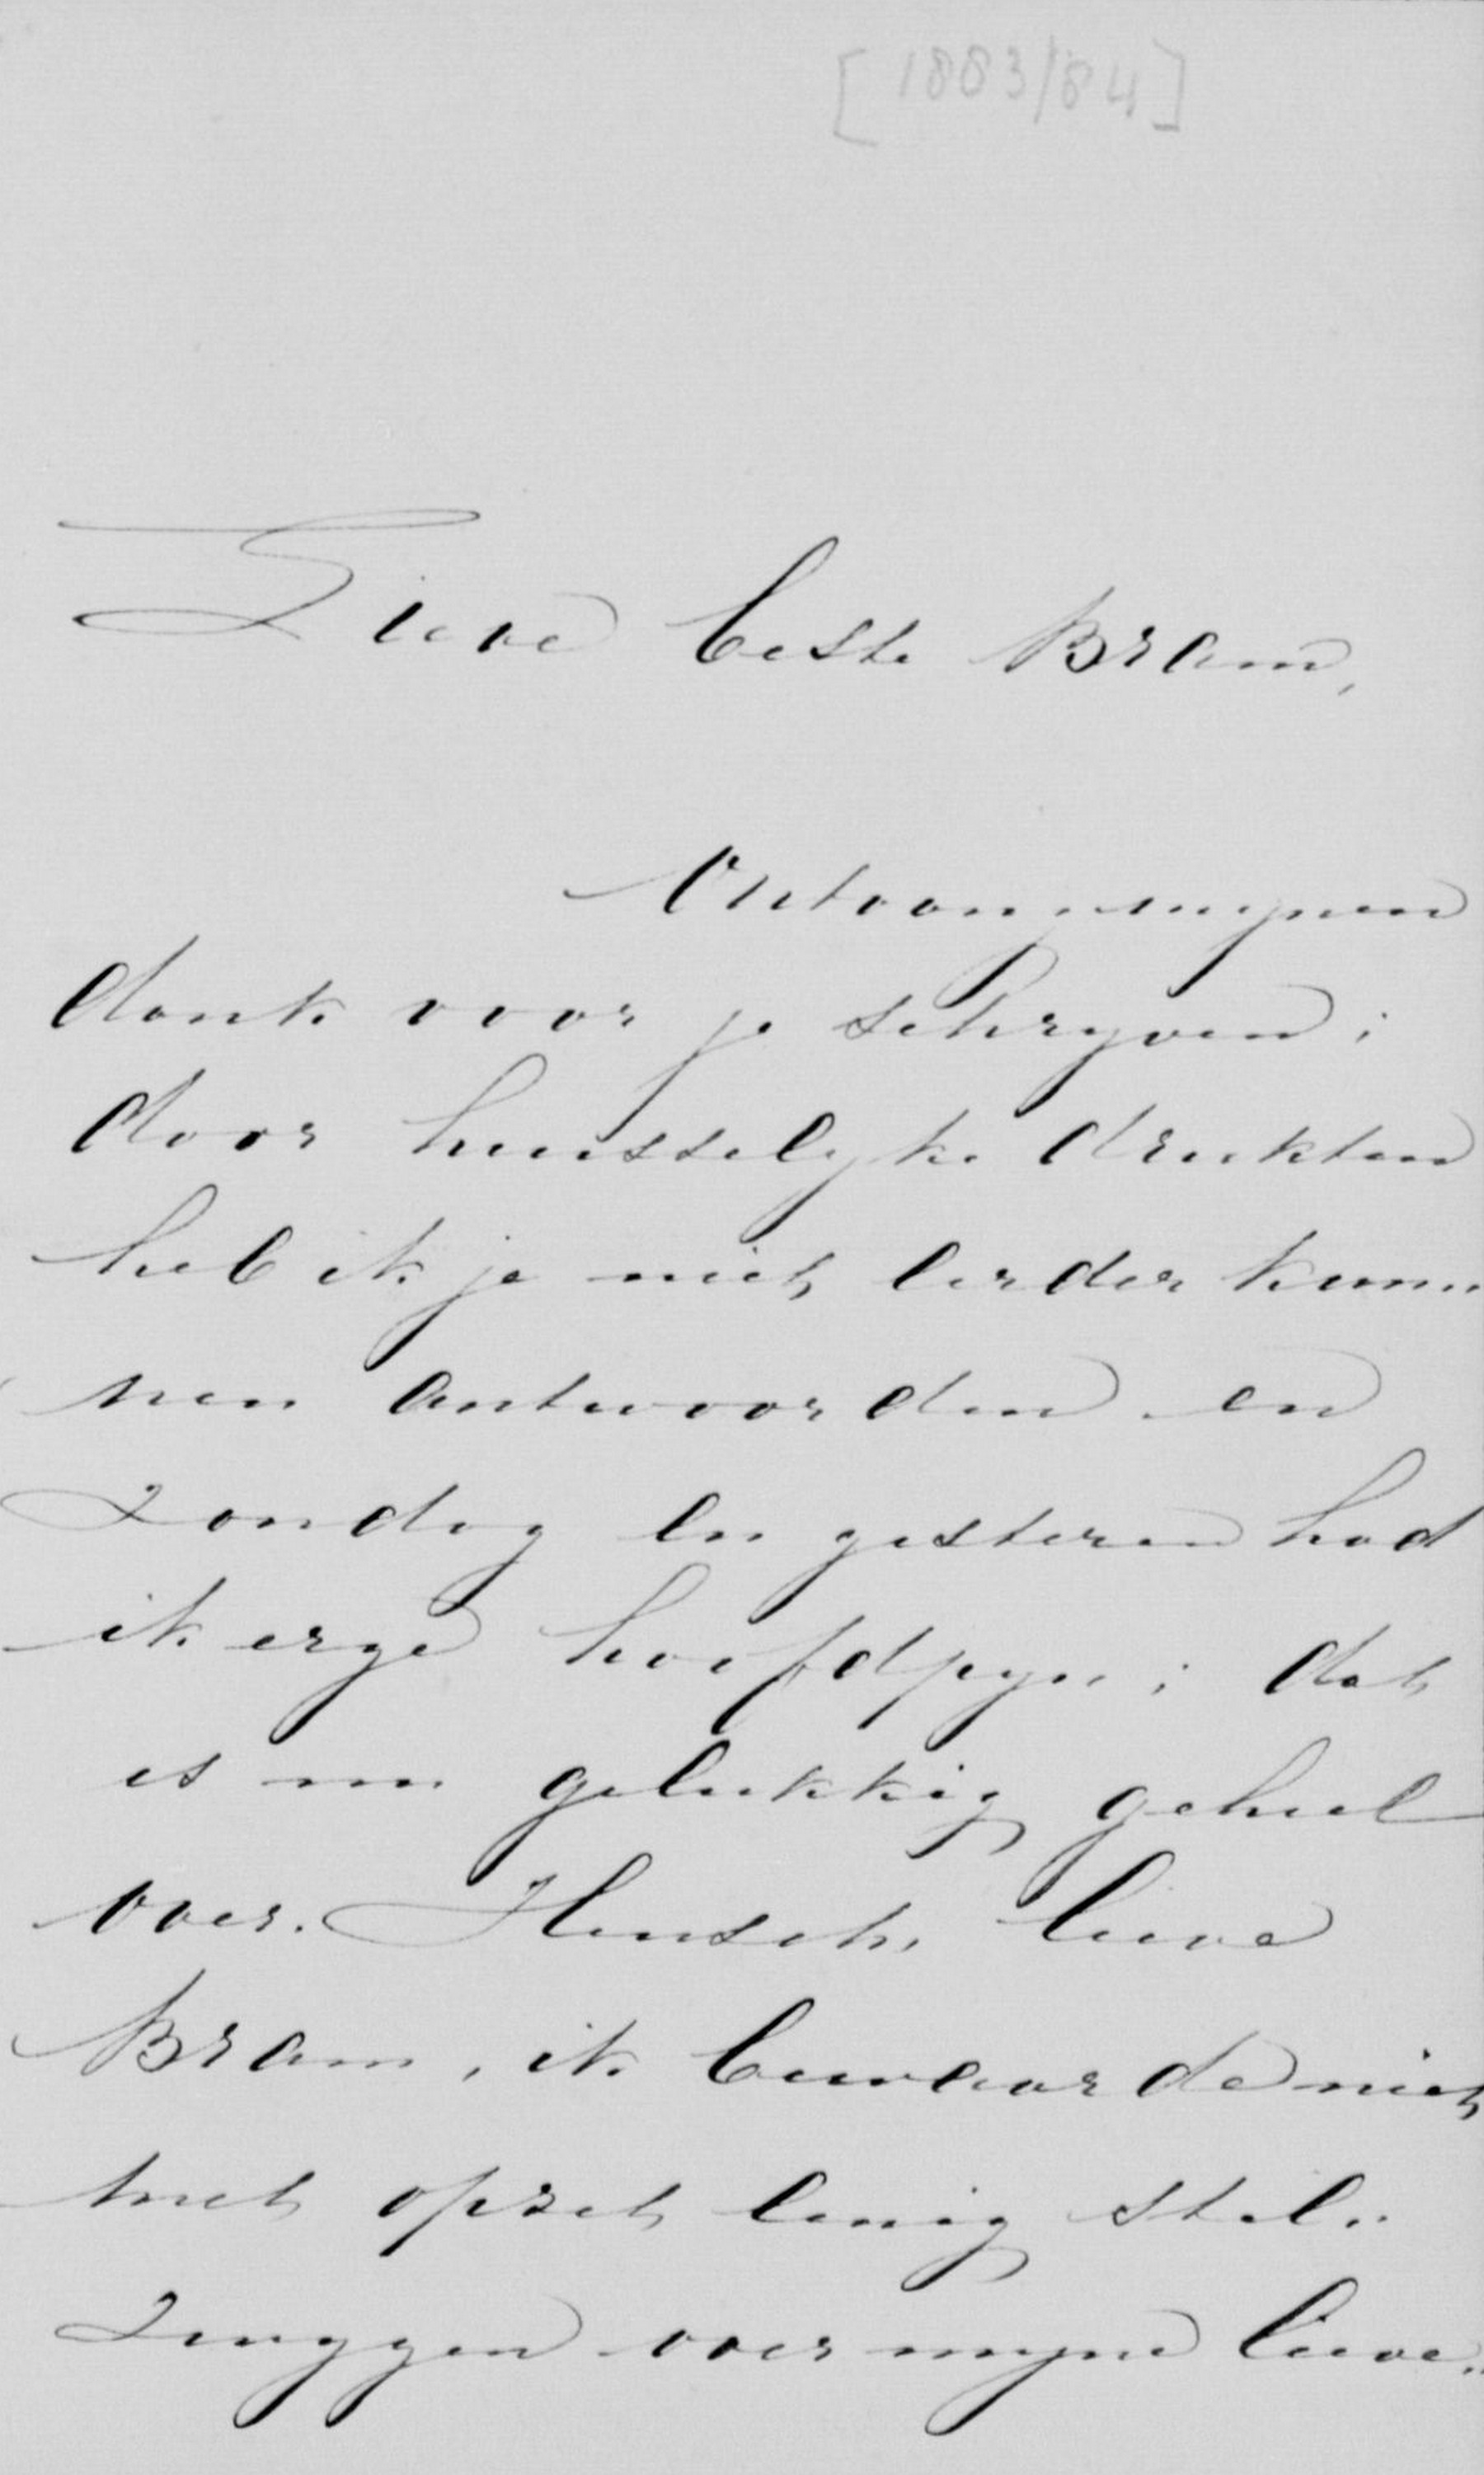 [1883/84]
Lieve beste Bram,
Ontvang mynen
dank voor je schryven;
door huisselyke drukten
heb ik je niet eerder kun„
nen antwoorden en
Zondag en gisteren had
ik erge hoofdpyn; dat
is nu gelukkig geheel
over. Heusch, lieve
Bram, ik bewaarde niet
met opzet eenig stil„
zwygen over myne lieve„